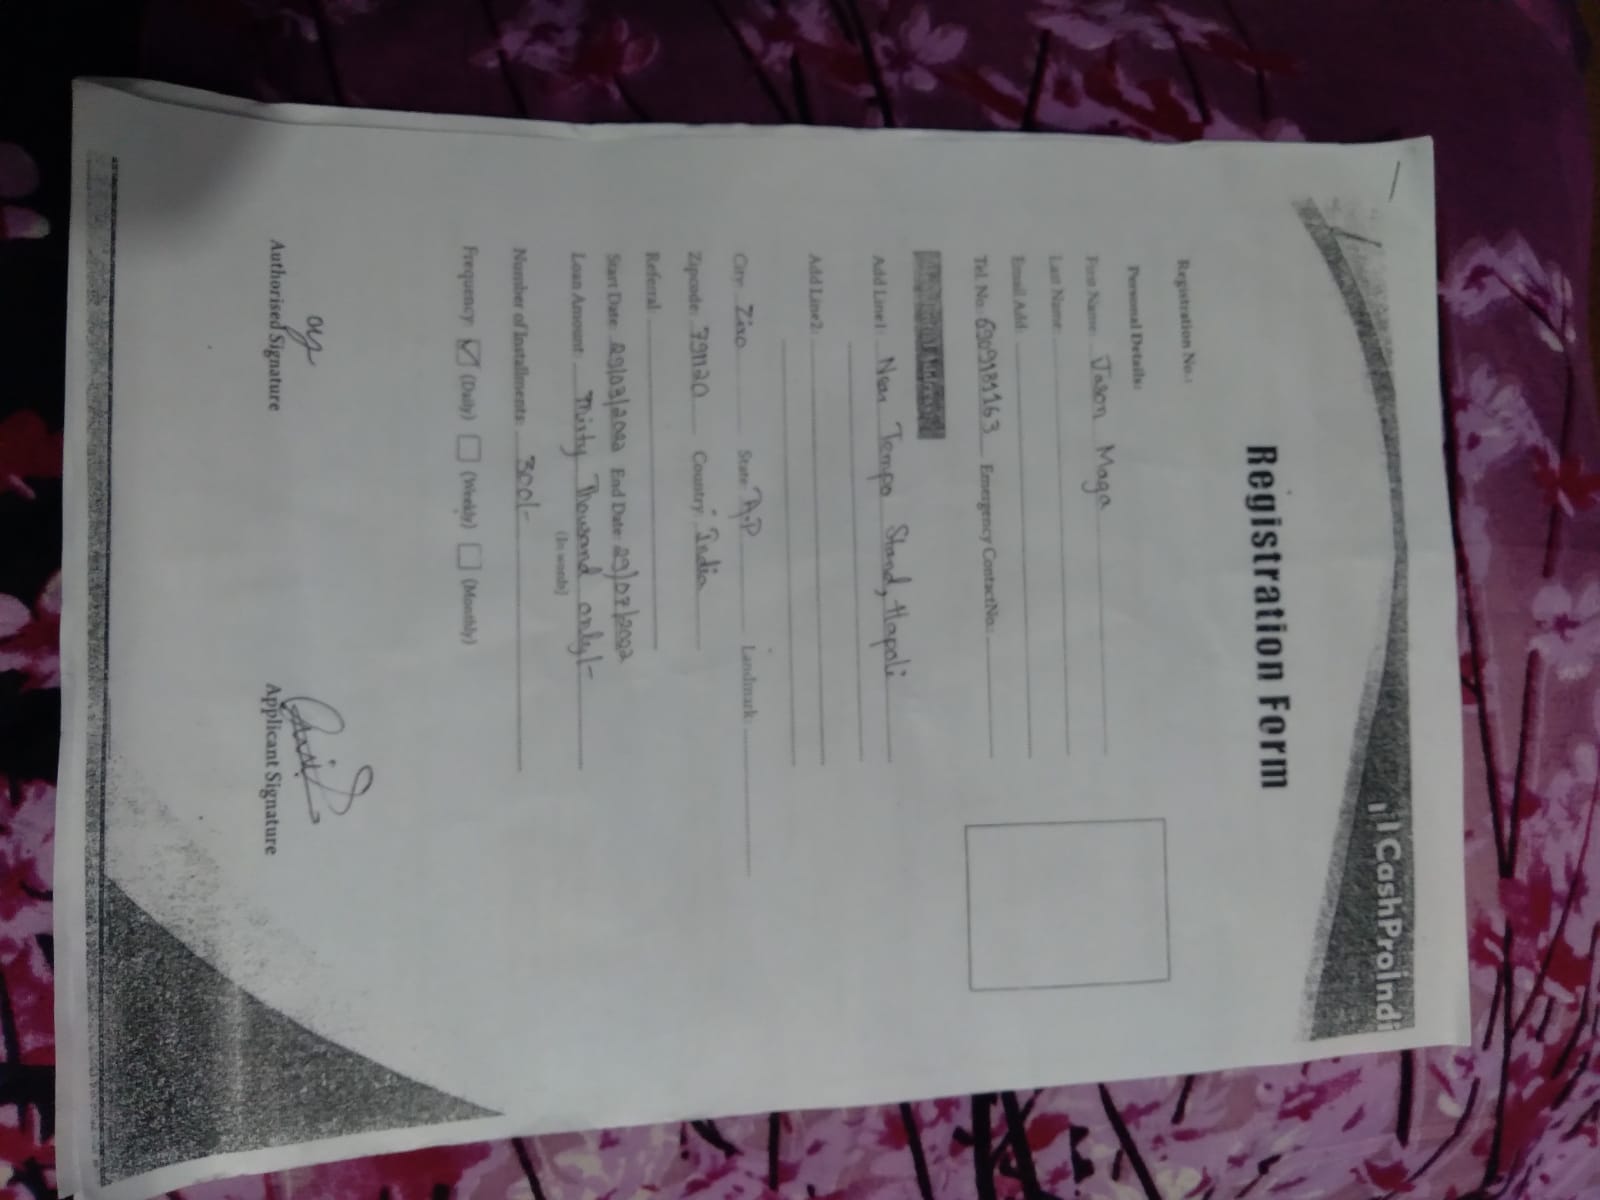 CashProIndi
Registration Form
Registration No.:
Personal Details:
First Name: Jason Maga
Last Name:
Email Add:
Tel. No: 6909181163 Emergency ContactNo.:
Add Line1: Near Tempo Stand, Hapoli
Add Line2:
City: Ziro State: A.P Landmark:
Zipcode: 791120 Country: India
Referral:
Start Date: 29/03/2022 End Date: 29/07/2022
Loan Amount: Thirty Thousand only/-
(In words)
Number of Installments: 300/-
Frequency: ☑ (Daily) ☐ (Weekly) ☐ (Monthly)
Authorised Signature Applicant Signature